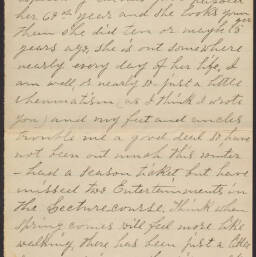 her 60th year and she looks younger
than she did ten or maybe 15
years ago, she is out somewhere
nearly every day of her life, I
am well, or nearly so just a little
rheumatism (as I think I wrote
you) and my feet and ancles
trouble me a good deal so have
not been out much this winter
- had a season ticket but have
missed two Entertainments in
the Lecture course. Think when
spring comes will feel more like
walking, there has been just a little